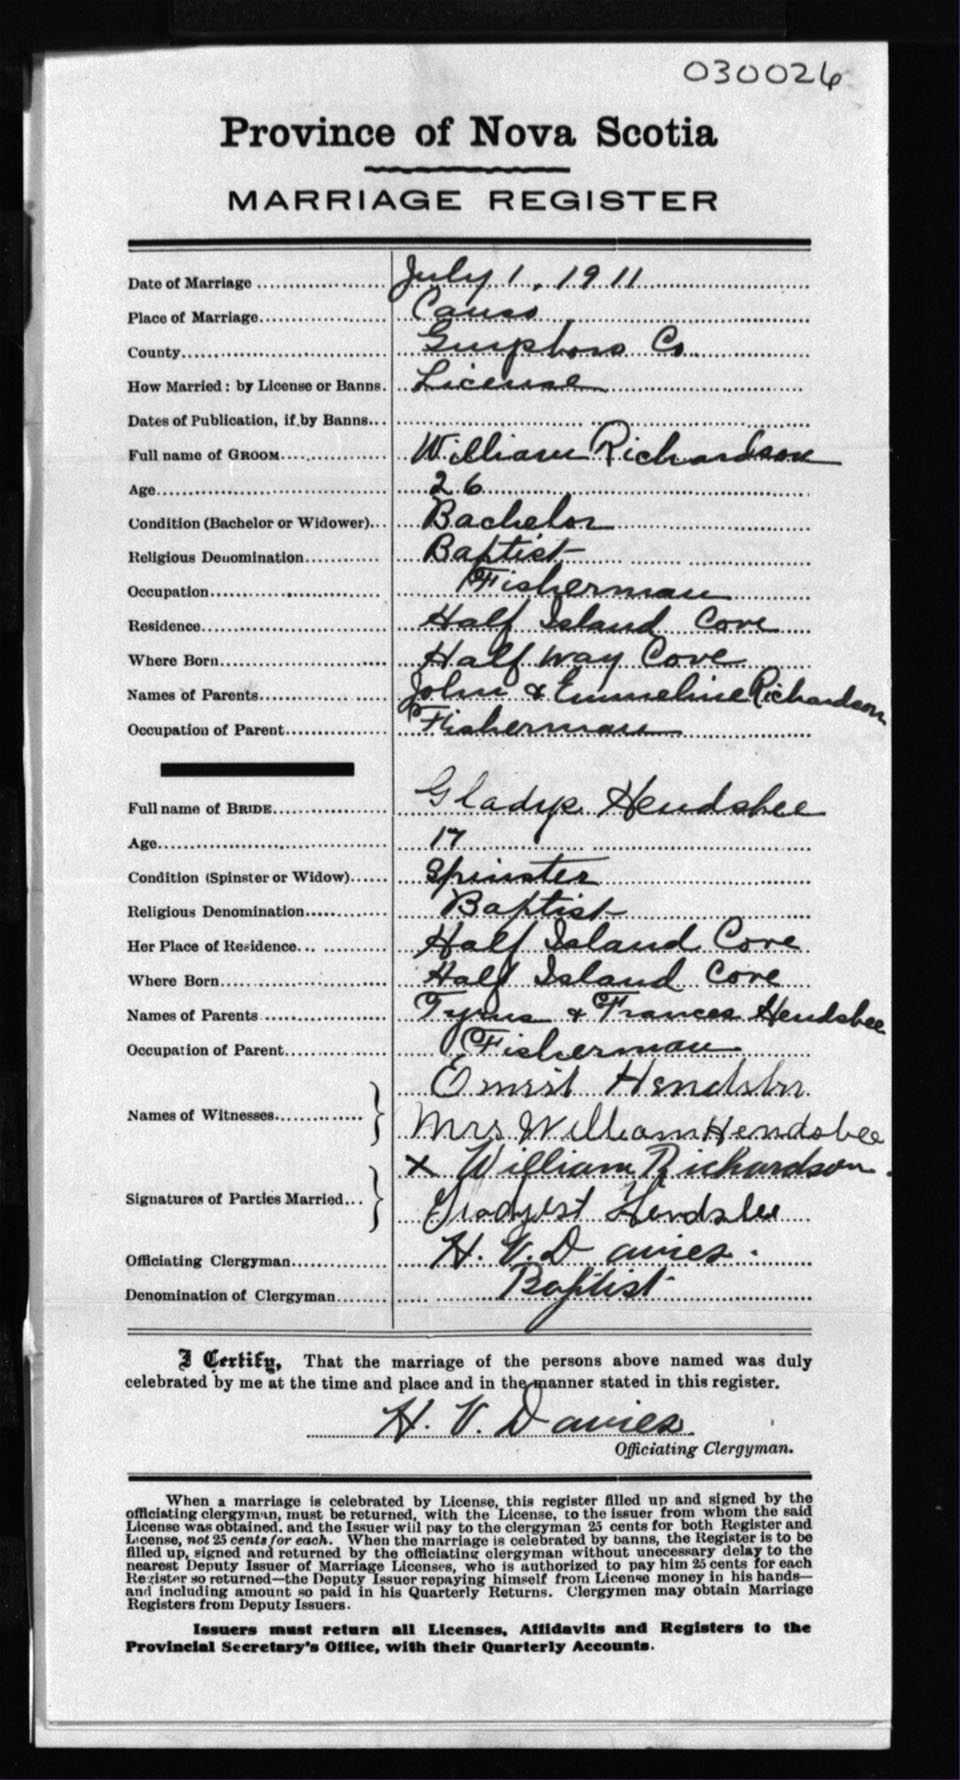 030026
Province of Nova Scotia
MARRIAGE REGISTER
Date of Marriage July 1, 1911
Place of Marriage Canso
County Guysboro Co.
How Married: by License or Banns. License
Dates of Publication, if by Banns
Full name of GROOM William Richardson
Age 26
Condition (Bachelor or Widower) Bachelor
Religious Denomination Baptist
Occupation Fisherman
Residence Half Island Cove
Where Born Half Way Cove
Names of Parents John & Emmeline Richardson
Occupation of Parent Fisherman
Full name of BRIDE Gladys Hendsbee
Age 17
Condition (Spinster or Widow) Spinster
Religious Denomination Baptist
Her Place of Residence Half Island Cove
Where Born Half Island Cove
Names of Parents Tyrus & Frances Hendsbee
Occupation of Parent Fisherman
Names of Witnesses
Mrs William Hendsbee
Signatures of Parties Married X William Richardson
Hendsbee
Officiating Clergyman H. V. Davies.
Denomination of Clergyman Baptist
I Certify, That the marriage of the persons above named was duly
celebrated by me at the time and place and in the manner stated in this register.
H. V. Davies
Officiating Clergyman.
When a marriage is celebrated by License, this register filled up and signed by the
officiating clergyman, must be returned, with the License, to the issuer from whom the said
License was obtained, and the Issuer will pay to the clergyman 25 cents for both Register and
License, not 25 cents for each. When the marriage is celebrated by banns, the Register is to be
filled up, signed and returned by the officiating clergyman without unnecessary delay to the
nearest Deputy Issuer of Marriage Licenses, who is authorized to pay him 25 cents for each
Register so returned—the Deputy Issuer repaying himself from License money in his hands—
and including amount so paid in his Quarterly Returns. Clergymen may obtain Marriage
Registers from Deputy Issuers.
Issuers must return all Licenses, Affidavits and Registers to the
Provincial Secretary's Office, with their Quarterly Accounts.